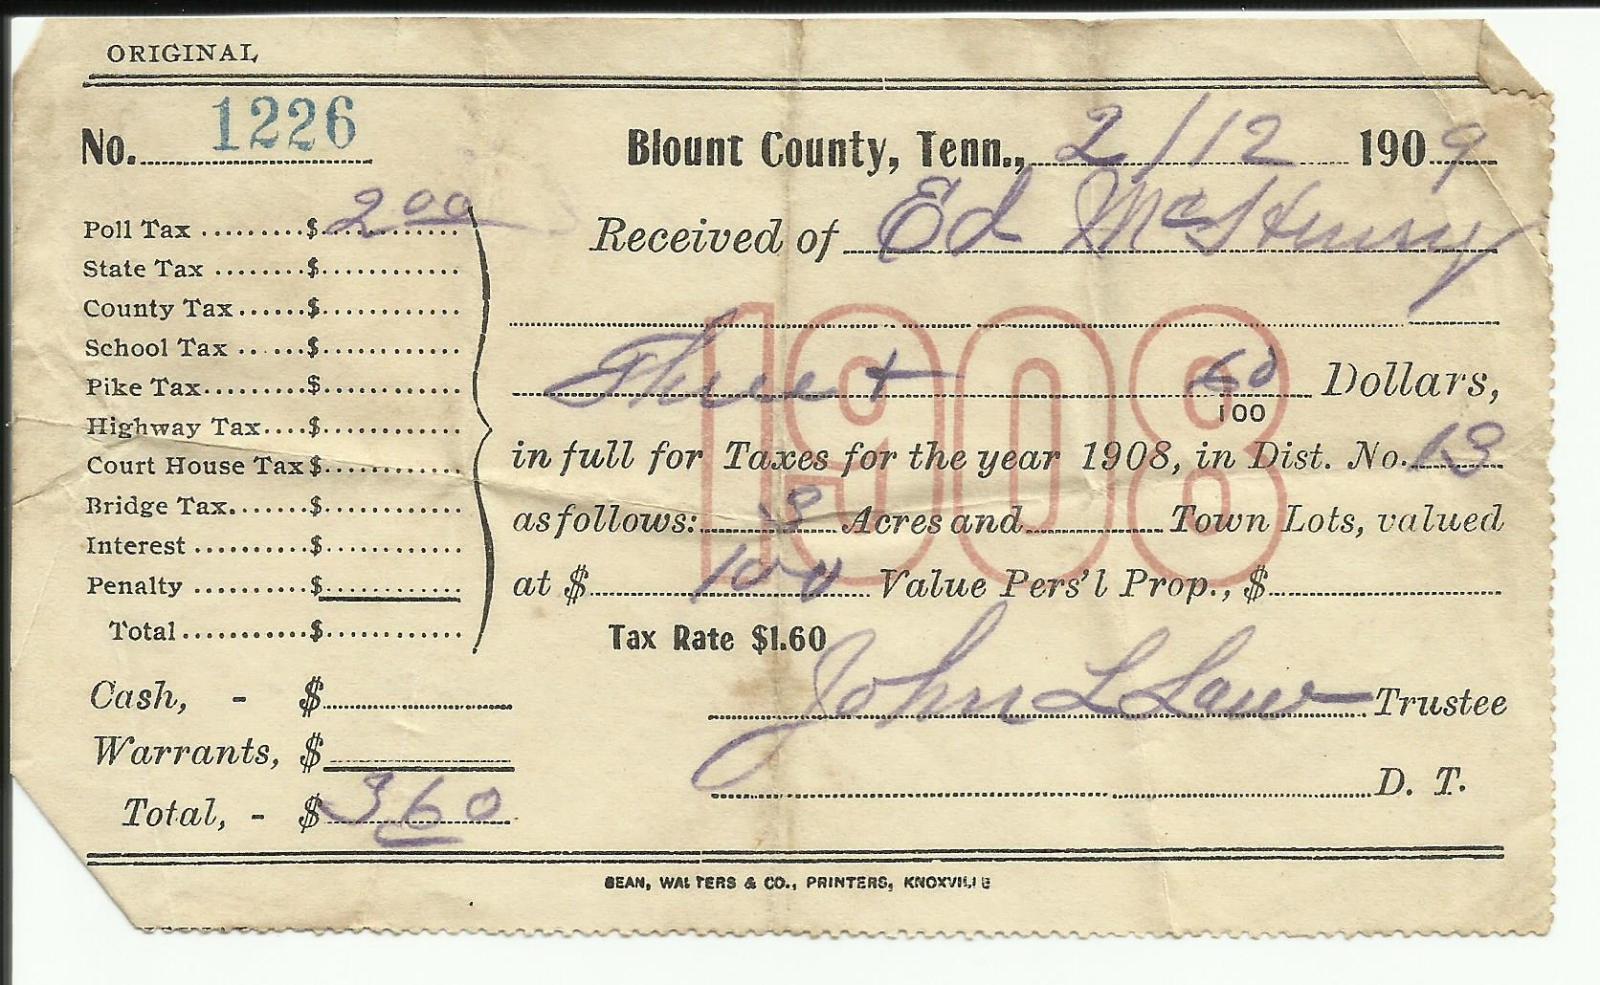 ORIGINAL
No. 1226
Blount County, Tenn., 2/12 1909
Received of Ed McHenry
Three + 60/100 Dollars,
in full for Taxes for the year 1908, in Dist. No. 13
as follows: Acres and Town Lots, valued
at $ 100 Value Pers'l Prop., $
Tax Rate $1.60
John L Law Trustee
D. T.
Poll Tax $ 2 00
State Tax $
County Tax $
School Tax $
Pike Tax $
Highway Tax $
Court House Tax $
Bridge Tax $
Interest $
Penalty $
Total $
Cash, - $
Warrants, $
Total, - $ 3 60
1908
BEAN, WALTERS & CO., PRINTERS, KNOXVILLE